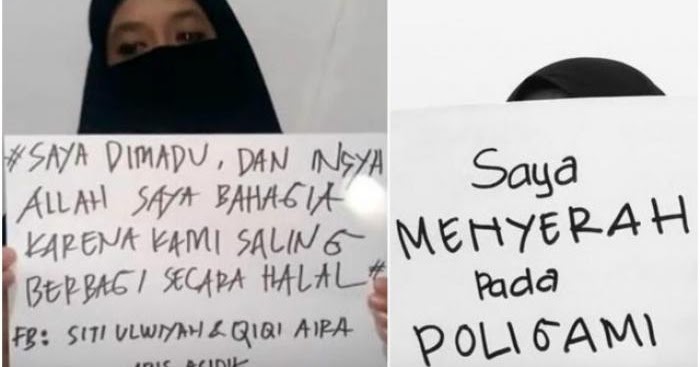 #SAYA DIMADU, DAN INSYA
ALLAH SAYA BAHAGIA
KARENA KAMI SALING
BERBAGI SECARA HALAL#
FB: SITI ULWIYAH & QIQI AIRA
Saya
MENYERAH
Pada
POLIGAMI